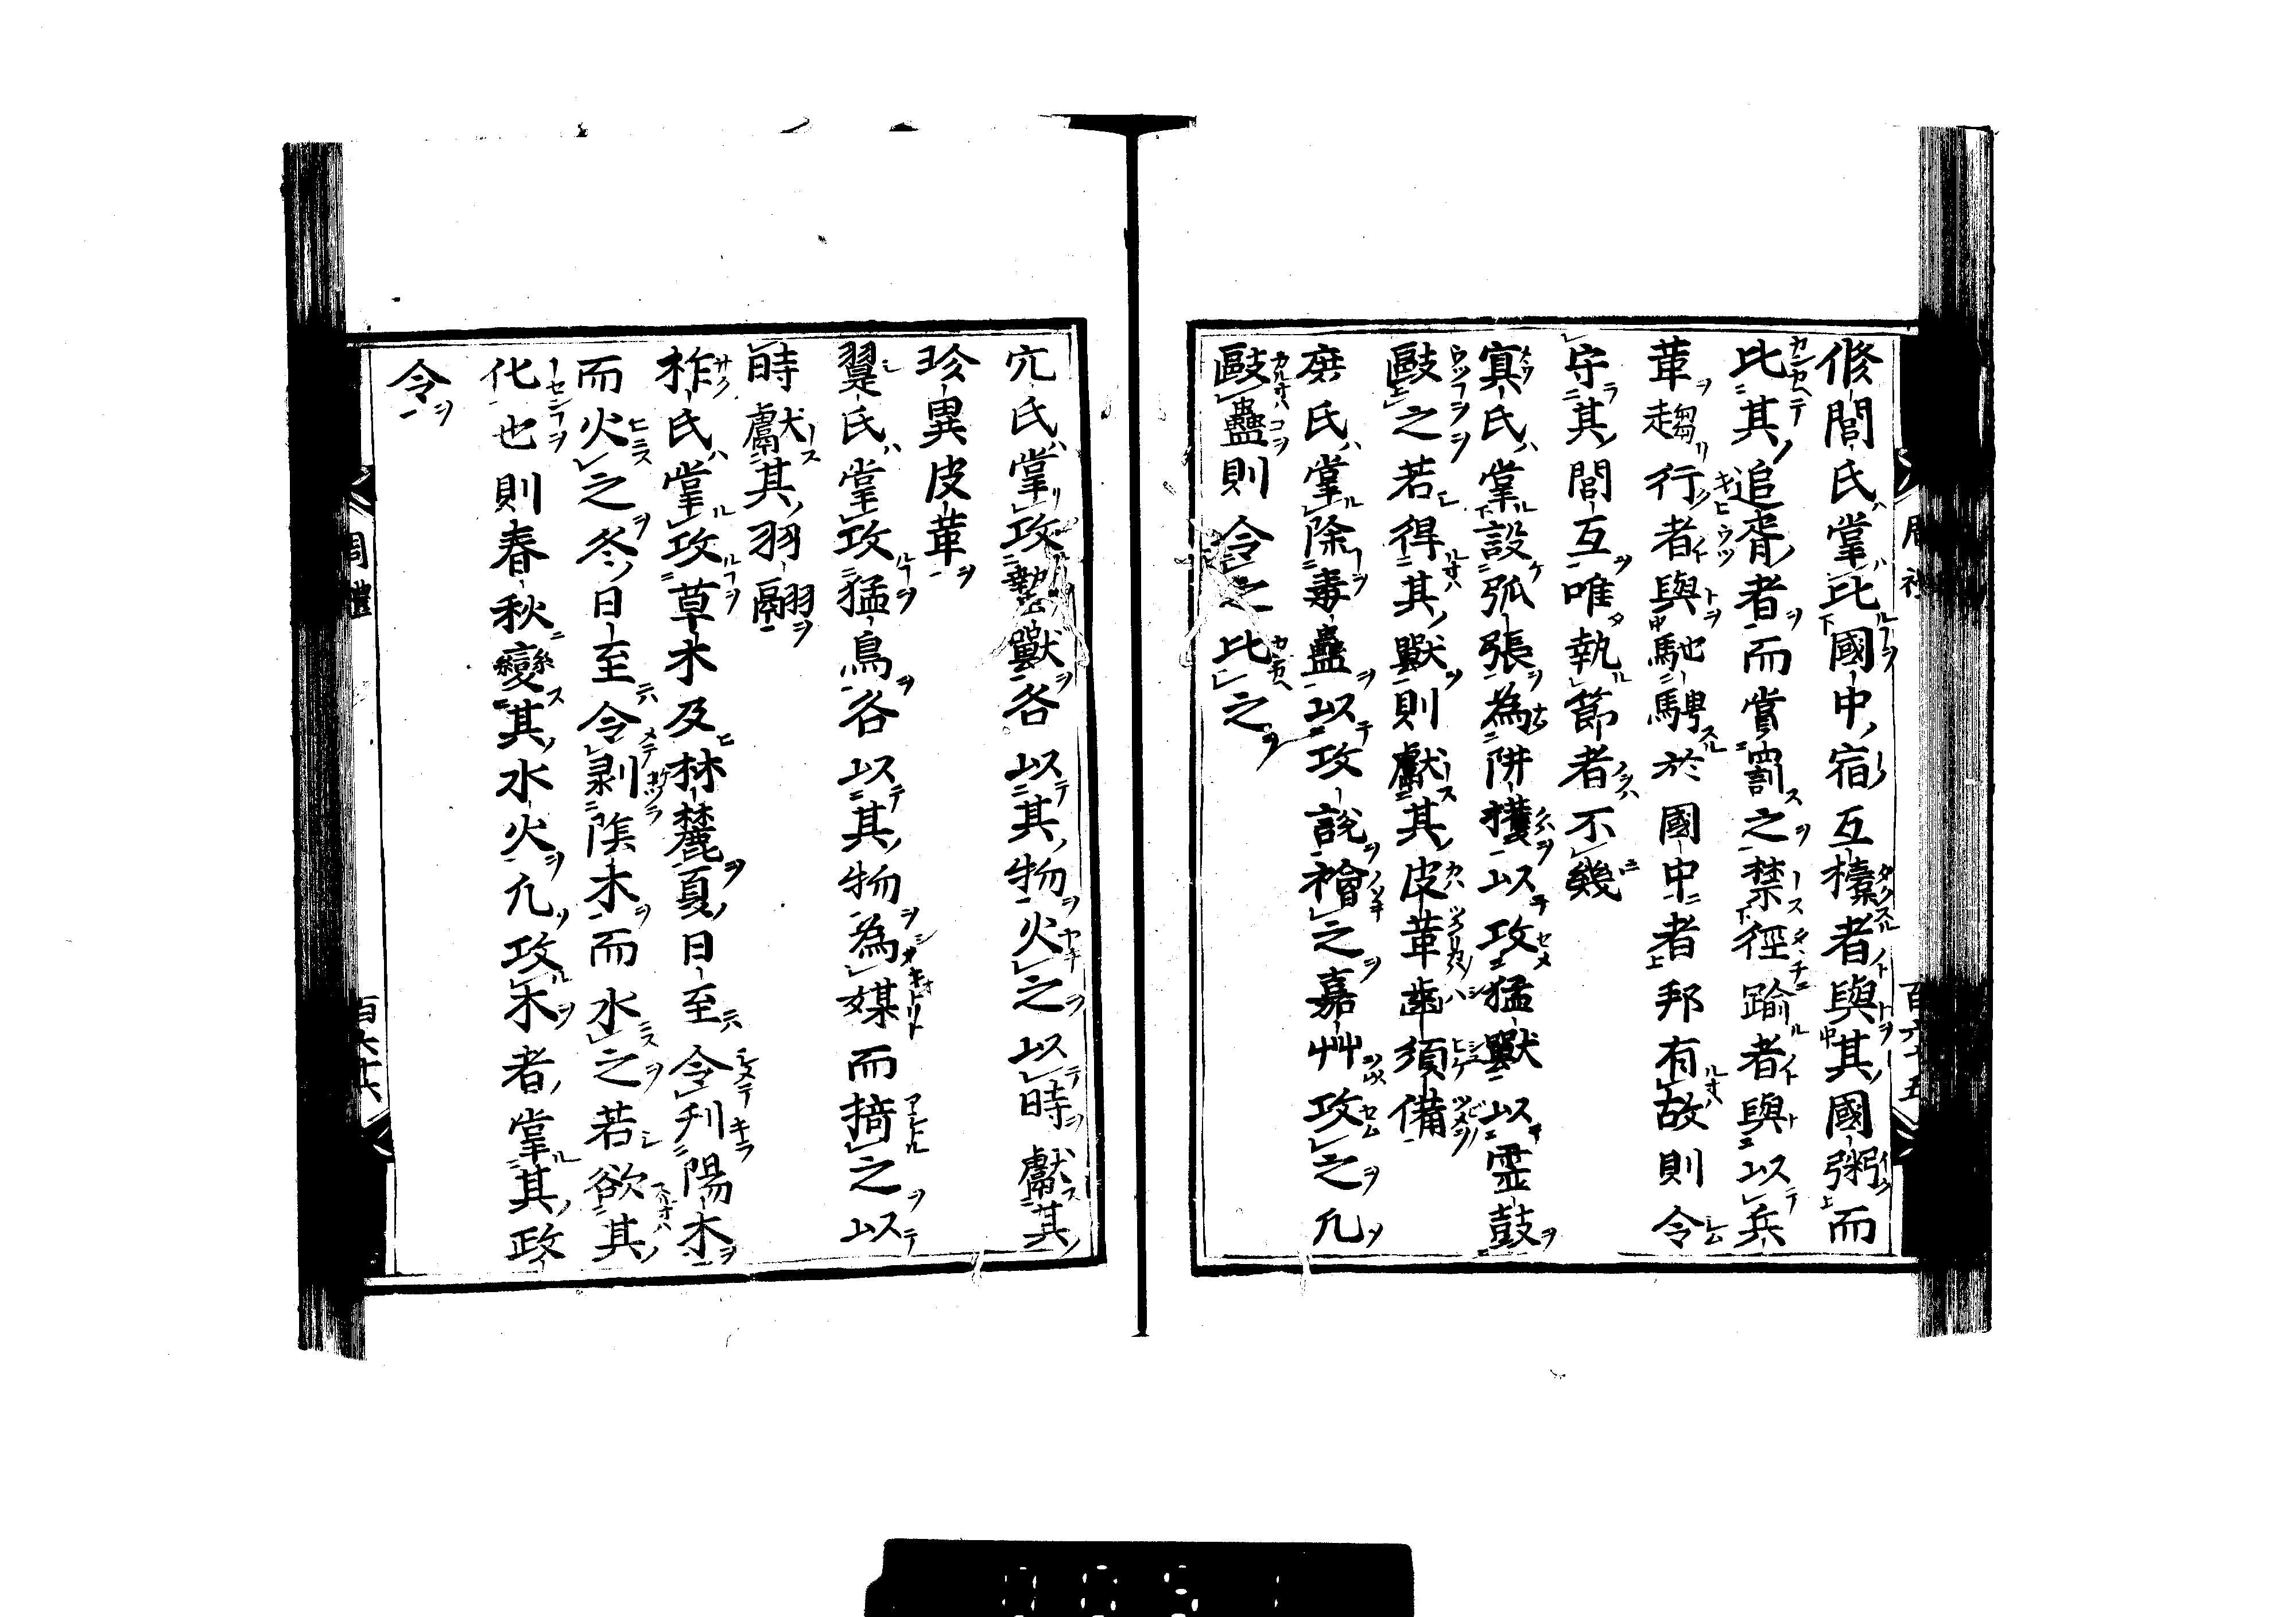 修閭氏掌比國中宿互㯓者與其國粥而
比其追胥者而賞罰之禁徑踰者與以兵
革趨行者與馳騁於國中者邦有故則令
守其閭互唯執節者不幾
冥氏掌設弧張為阱擭以攻猛獸以霊鼓
敺之若得其獸則獻其皮革齒須備
庶氏掌除毒蠱以攻說禬之嘉艸攻之凢
敺蠱則令之比之
穴氏掌攻蟄獸各以其物火之以時獻其
珍異皮革
翨氏掌攻猛鳥各以其物為媒而掎之以
時獻其羽翮
柞氏掌攻草木及林麓夏日至令刋陽木
而火之冬日至令剥陰木而水之若欲其
化也則春秋變其水火凢攻木者掌其政
令
周禮
百六十五
周禮
百六十六